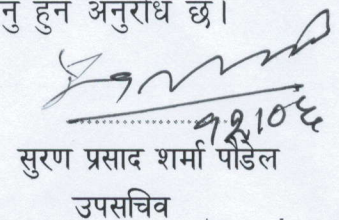 नु हुन अनुरोध छ।
सुरण प्रसाद शर्मा पौडेल
उपसचिव